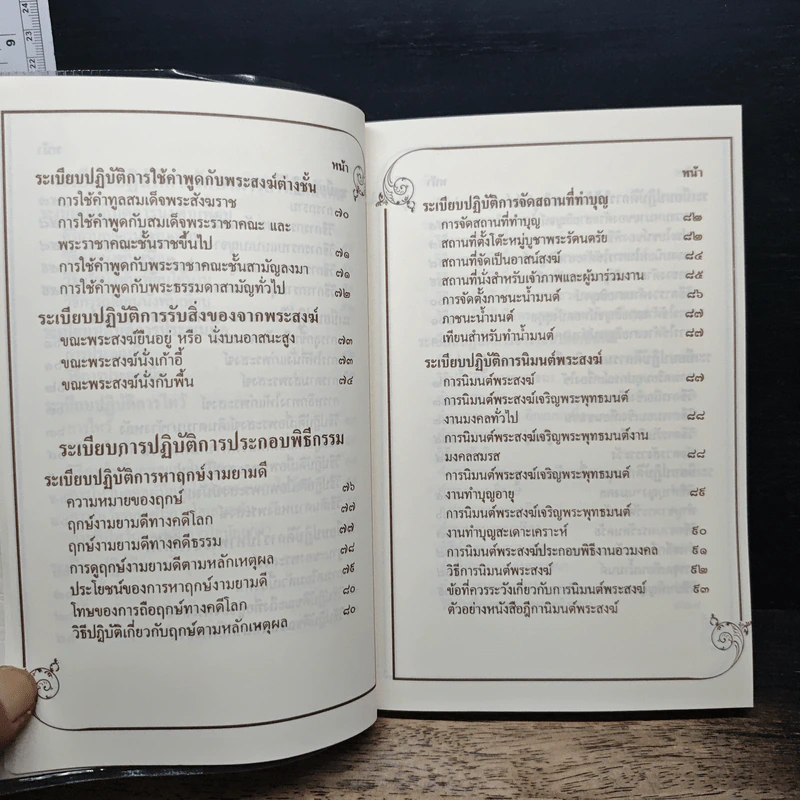 หน้า
ระเบียบปฏิบัติการใช้คำพูดกับพระสงฆ์ต่างชั้น
การใช้คำทูลสมเด็จพระสังฆราช ๗๐
การใช้คำพูดกับสมเด็จพระราชาคณะ และ
พระราชาคณะชั้นราชขึ้นไป ๗๑
การใช้คำพูดกับพระราชาคณะชั้นสามัญลงมา ๗๑
การใช้คำพูดกับพระธรรมดาสามัญทั่วไป ๗๒
ระเบียบปฏิบัติการรับสิ่งของจากพระสงฆ์
ขณะพระสงฆ์ยืนอยู่ หรือ นั่งบนอาสนะสูง ๗๓
ขณะพระสงฆ์นั่งเก้าอี้ ๗๓
ขณะพระสงฆ์นั่งกับพื้น ๗๔
ระเบียบการปฏิบัติการประกอบพิธีกรรม
ระเบียบปฏิบัติการหาฤกษ์งามยามดี
ความหมายของฤกษ์ ๗๖
ฤกษ์งามยามดีทางคดีโลก ๗๗
ฤกษ์งามยามดีทางคดีธรรม ๗๗
การดูฤกษ์งามยามดีตามหลักเหตุผล ๗๘
ประโยชน์ของการหาฤกษ์งามยามดี ๗๙
โทษของการถือฤกษ์ทางคดีโลก ๘๐
วิธีปฏิบัติเกี่ยวกับฤกษ์ตามหลักเหตุผล ๘๐
หน้า
ระเบียบปฏิบัติการจัดสถานที่ทำบุญ
การจัดสถานที่ทำบุญ ๘๒
สถานที่ตั้งโต๊ะหมู่บูชาพระรัตนตรัย ๘๒
สถานที่จัดเป็นอาสน์สงฆ์ ๘๔
สถานที่นั่งสำหรับเจ้าภาพและผู้มาร่วมงาน ๘๕
การจัดตั้งภาชนะน้ำมนต์ ๘๖
ภาชนะน้ำมนต์ ๘๗
เทียนสำหรับทำน้ำมนต์ ๘๗
ระเบียบปฏิบัติการนิมนต์พระสงฆ์
การนิมนต์พระสงฆ์ ๘๗
การนิมนต์พระสงฆ์เจริญพระพุทธมนต์
งานมงคลทั่วไป ๘๘
การนิมนต์พระสงฆ์เจริญพระพุทธมนต์งาน
มงคลสมรส ๘๘
การนิมนต์พระสงฆ์เจริญพระพุทธมนต์
งานทำบุญอายุ ๘๙
การนิมนต์พระสงฆ์เจริญพระพุทธมนต์
งานทำบุญสะเดาะเคราะห์ ๙๐
การนิมนต์พระสงฆ์ประกอบพิธีงานอวมงคล ๙๑
วิธีการนิมนต์พระสงฆ์ ๙๒
ข้อที่ควรระวังเกี่ยวกับการนิมนต์พระสงฆ์ ๙๓
ตัวอย่างหนังสือฎีกานิมนต์พระสงฆ์
9
24
23
22